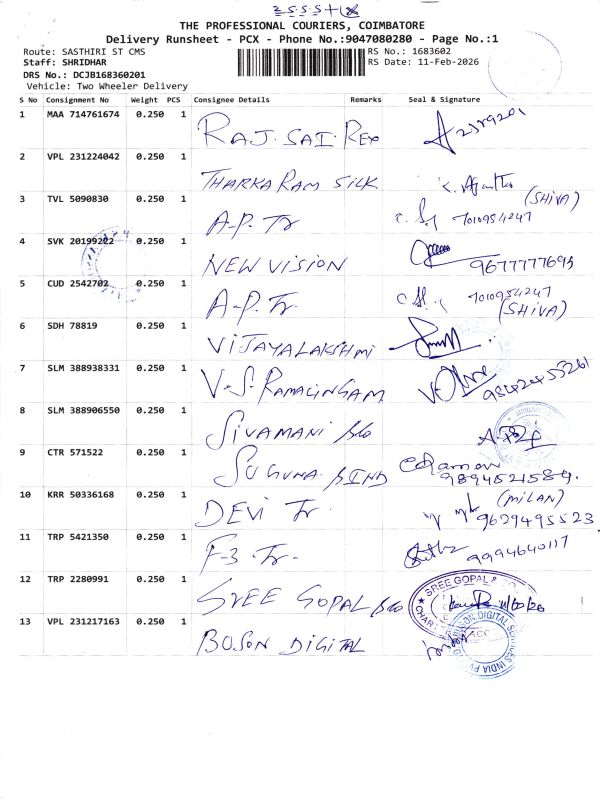 THE PROFESSIONAL COURIERS, COIMBATORE
Delivery Runsheet - PCX - Phone No.:9047080280 - Page No.:1
Route: SASTHIRI ST CMS RS No.: 1683602
Staff: SHRIDHAR RS Date: 11-Feb-2026
DRS No.: DCJB168360201
Vehicle: Two Wheeler Delivery
S No Consignment No Weight PCS Consignee Details Remarks Seal & Signature
1 MAA 714761674 0.250 1 RAJ. SAI. Rex
2 VPL 231224042 0.250 1 THARKA RAM SILK
3 TVL 5090830 0.250 1 A-P. Tr (SHIVA) 7010954247
4 SVK 20199222 0.250 1 NEW VISION 9677777695
5 CUD 2542702 0.250 1 A-P. Tr. 7010954247 (SHIVA)
6 SDH 78819 0.250 1 VIJAYALAKSHMI
7 SLM 388938331 0.250 1 V-S. RAMALINGAM 9842455261
8 SLM 388906550 0.250 1 SIVAMANI &Co
9 CTR 571522 0.250 1 SUGUNA BIND 9894521584.
10 KRR 50336168 0.250 1 DEVI Tr. (MILAN) 9629495523
11 TRP 5421350 0.250 1 F-3. Tr. 9994640117
12 TRP 2280991 0.250 1 SREE GOPAL &Co SREE GOPAL &
13 VPL 231217163 0.250 1 BOSON DIGITAL